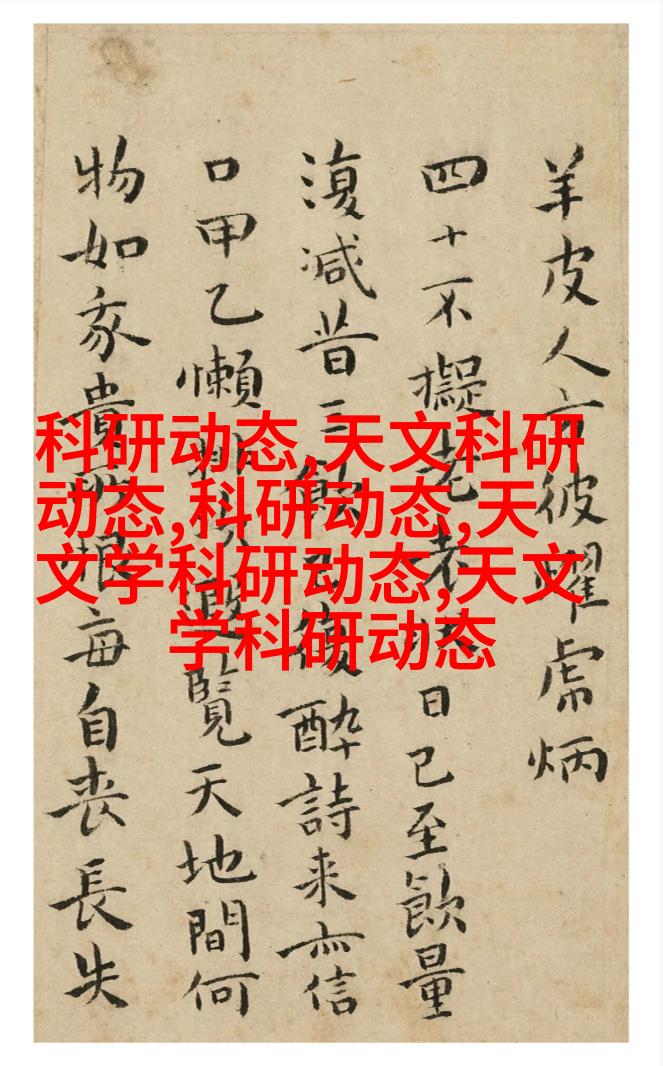 羊皮人亦彼耀虎炳
四十不擬老老日已至飲量
復減昔三復醉詩来亦信
口甲乙懶覽天地間何
物如豕貴恨每自喪長失
科研动态,天文科研
动态,科研动态,天
文学科研动态,天文
学科研动态